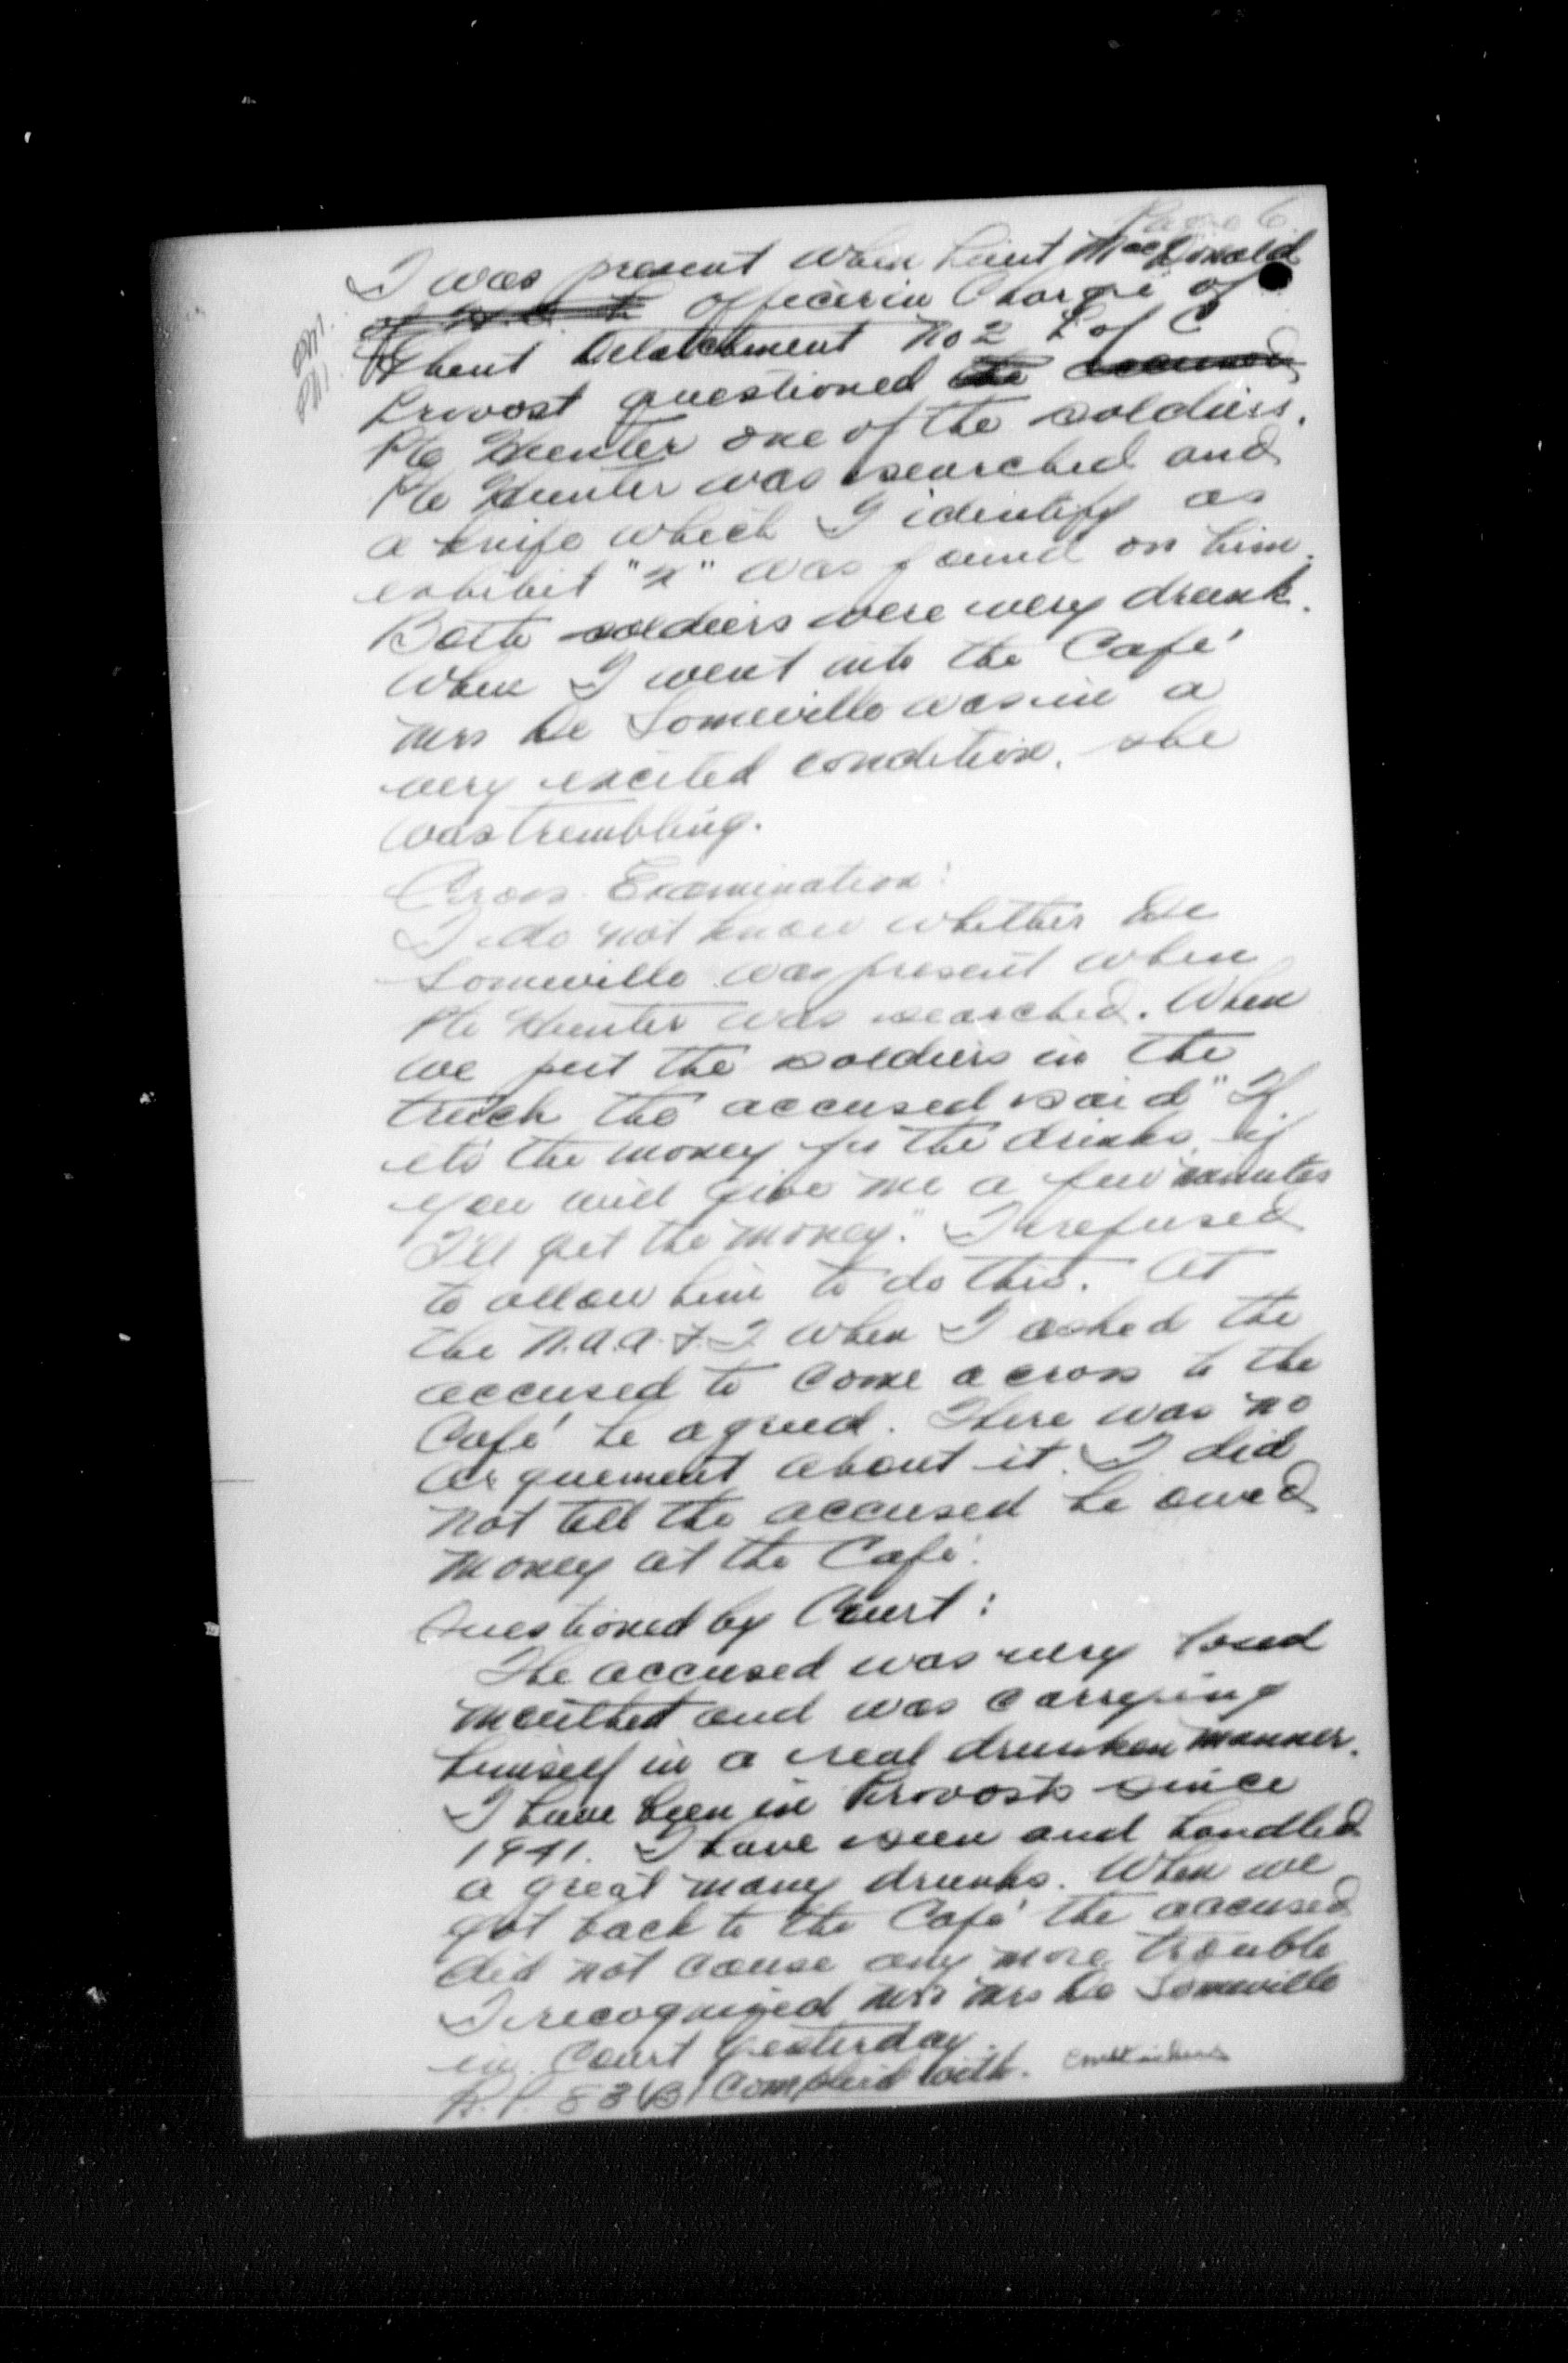 Page 6.
I was present when Lieut MacDonald
officer in Charge of
Ghent Detachment No 2 L of C
Provost questioned the accused
Pte Hunter one of the soldiers.
Pte Hunter was searched and
a knife which I identify as
exhibit "X" was found on him.
Both soldiers were very drunk.
When I went into the Café
Mrs De Someville was in a
very excited condition, she
was trembling.
Cross Examination:
I do not know whether De
Someville was present when
Pte Hunter was searched. When
we put the soldiers in the
truck the accused said "If
its the money for the drinks, if
you will give me a few minutes
I'll get the money." I refused
to allow him to do this. At
the N.A.A.F.I when I asked the
accused to come across to the
Café he agreed. There was no
arguement about it. I did
not tell the accused he owed
money at the Café.
Questioned by Court:
The accused was very loud
mouthed and was carrying
himself in a real drunken manner.
I have been in Provosts since
1941. I have seen and handled
a great many drunks. When we
got back to the Café the accused
did not cause any more trouble
I recognized Mrs De Someville
in Court yesterday.
R.P. 83 (B) Complied with.